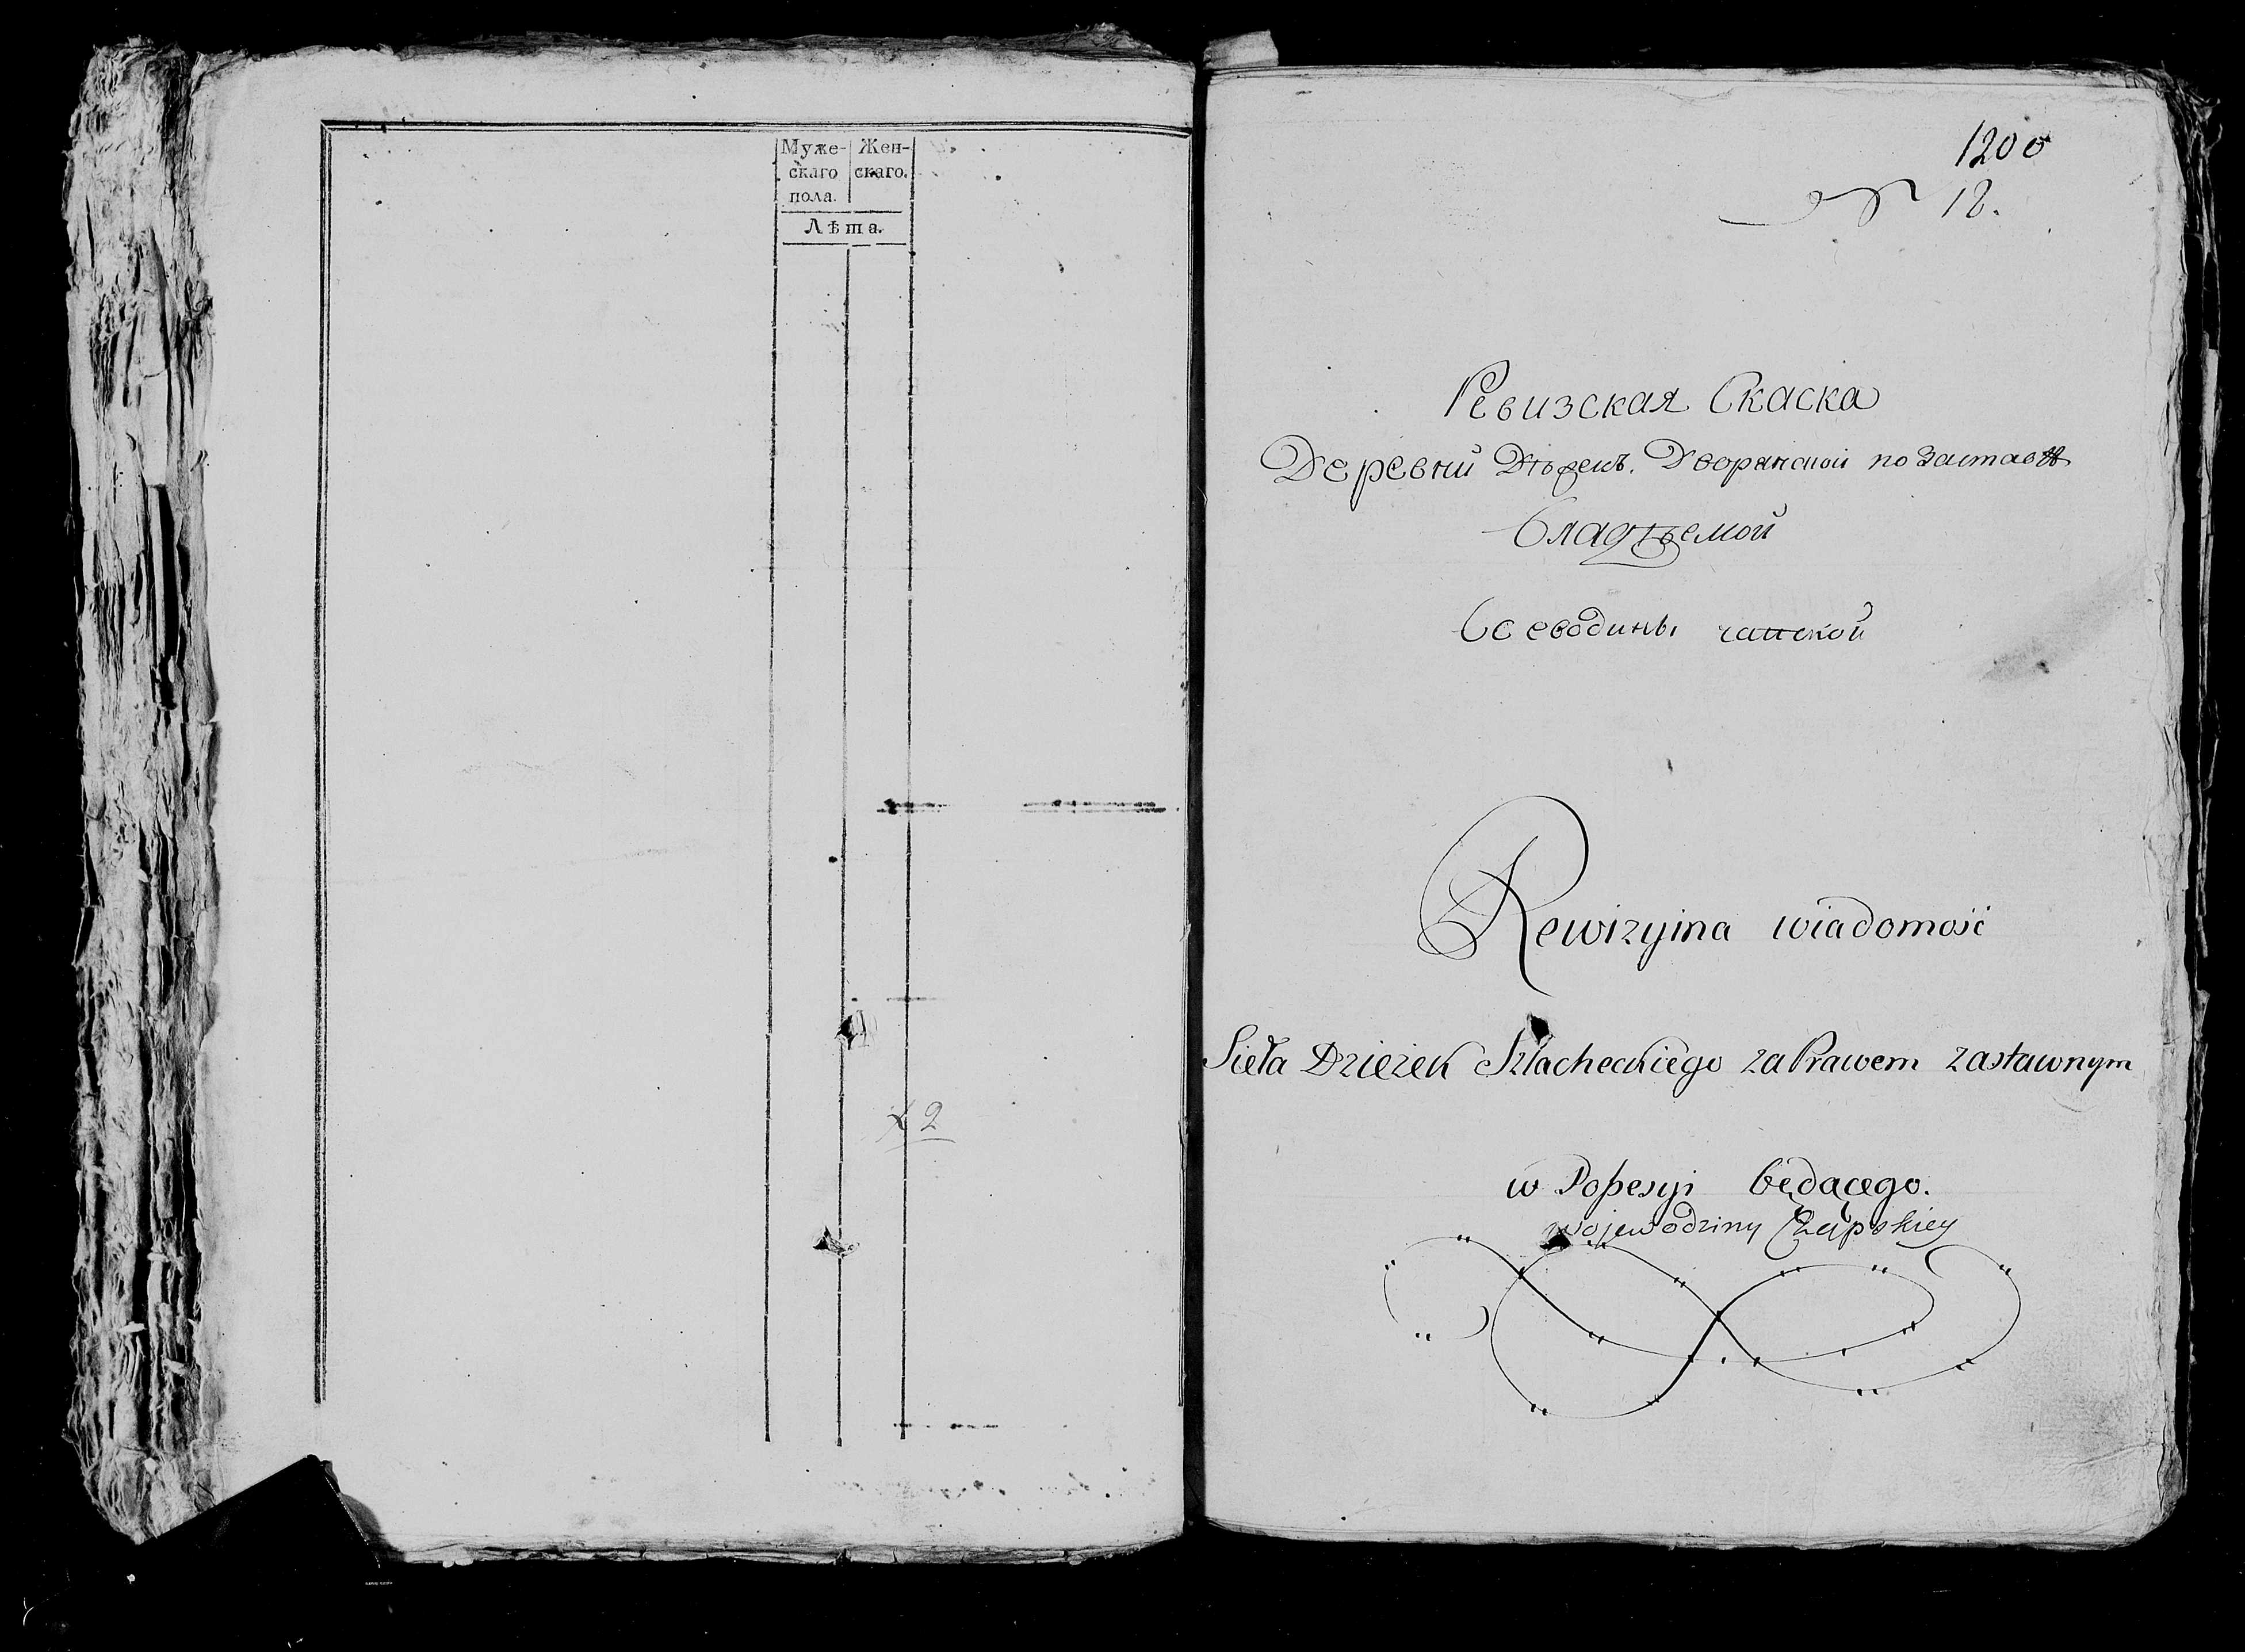 Муже-
скаго
пола.
Жен-
скаго.
Лѣта.
2
1200
№ 18.
Ревизская Скаска
Деревни Дѣжекъ. Дворянской по Заставѣ
Владѣемой
Воеводины чапской
Rewizyina wiadomość
Sieła Dzieżek Szlacheckiego za Prawem zastawnym
w Possesyi będącego.
wojewodziny Czapskiey